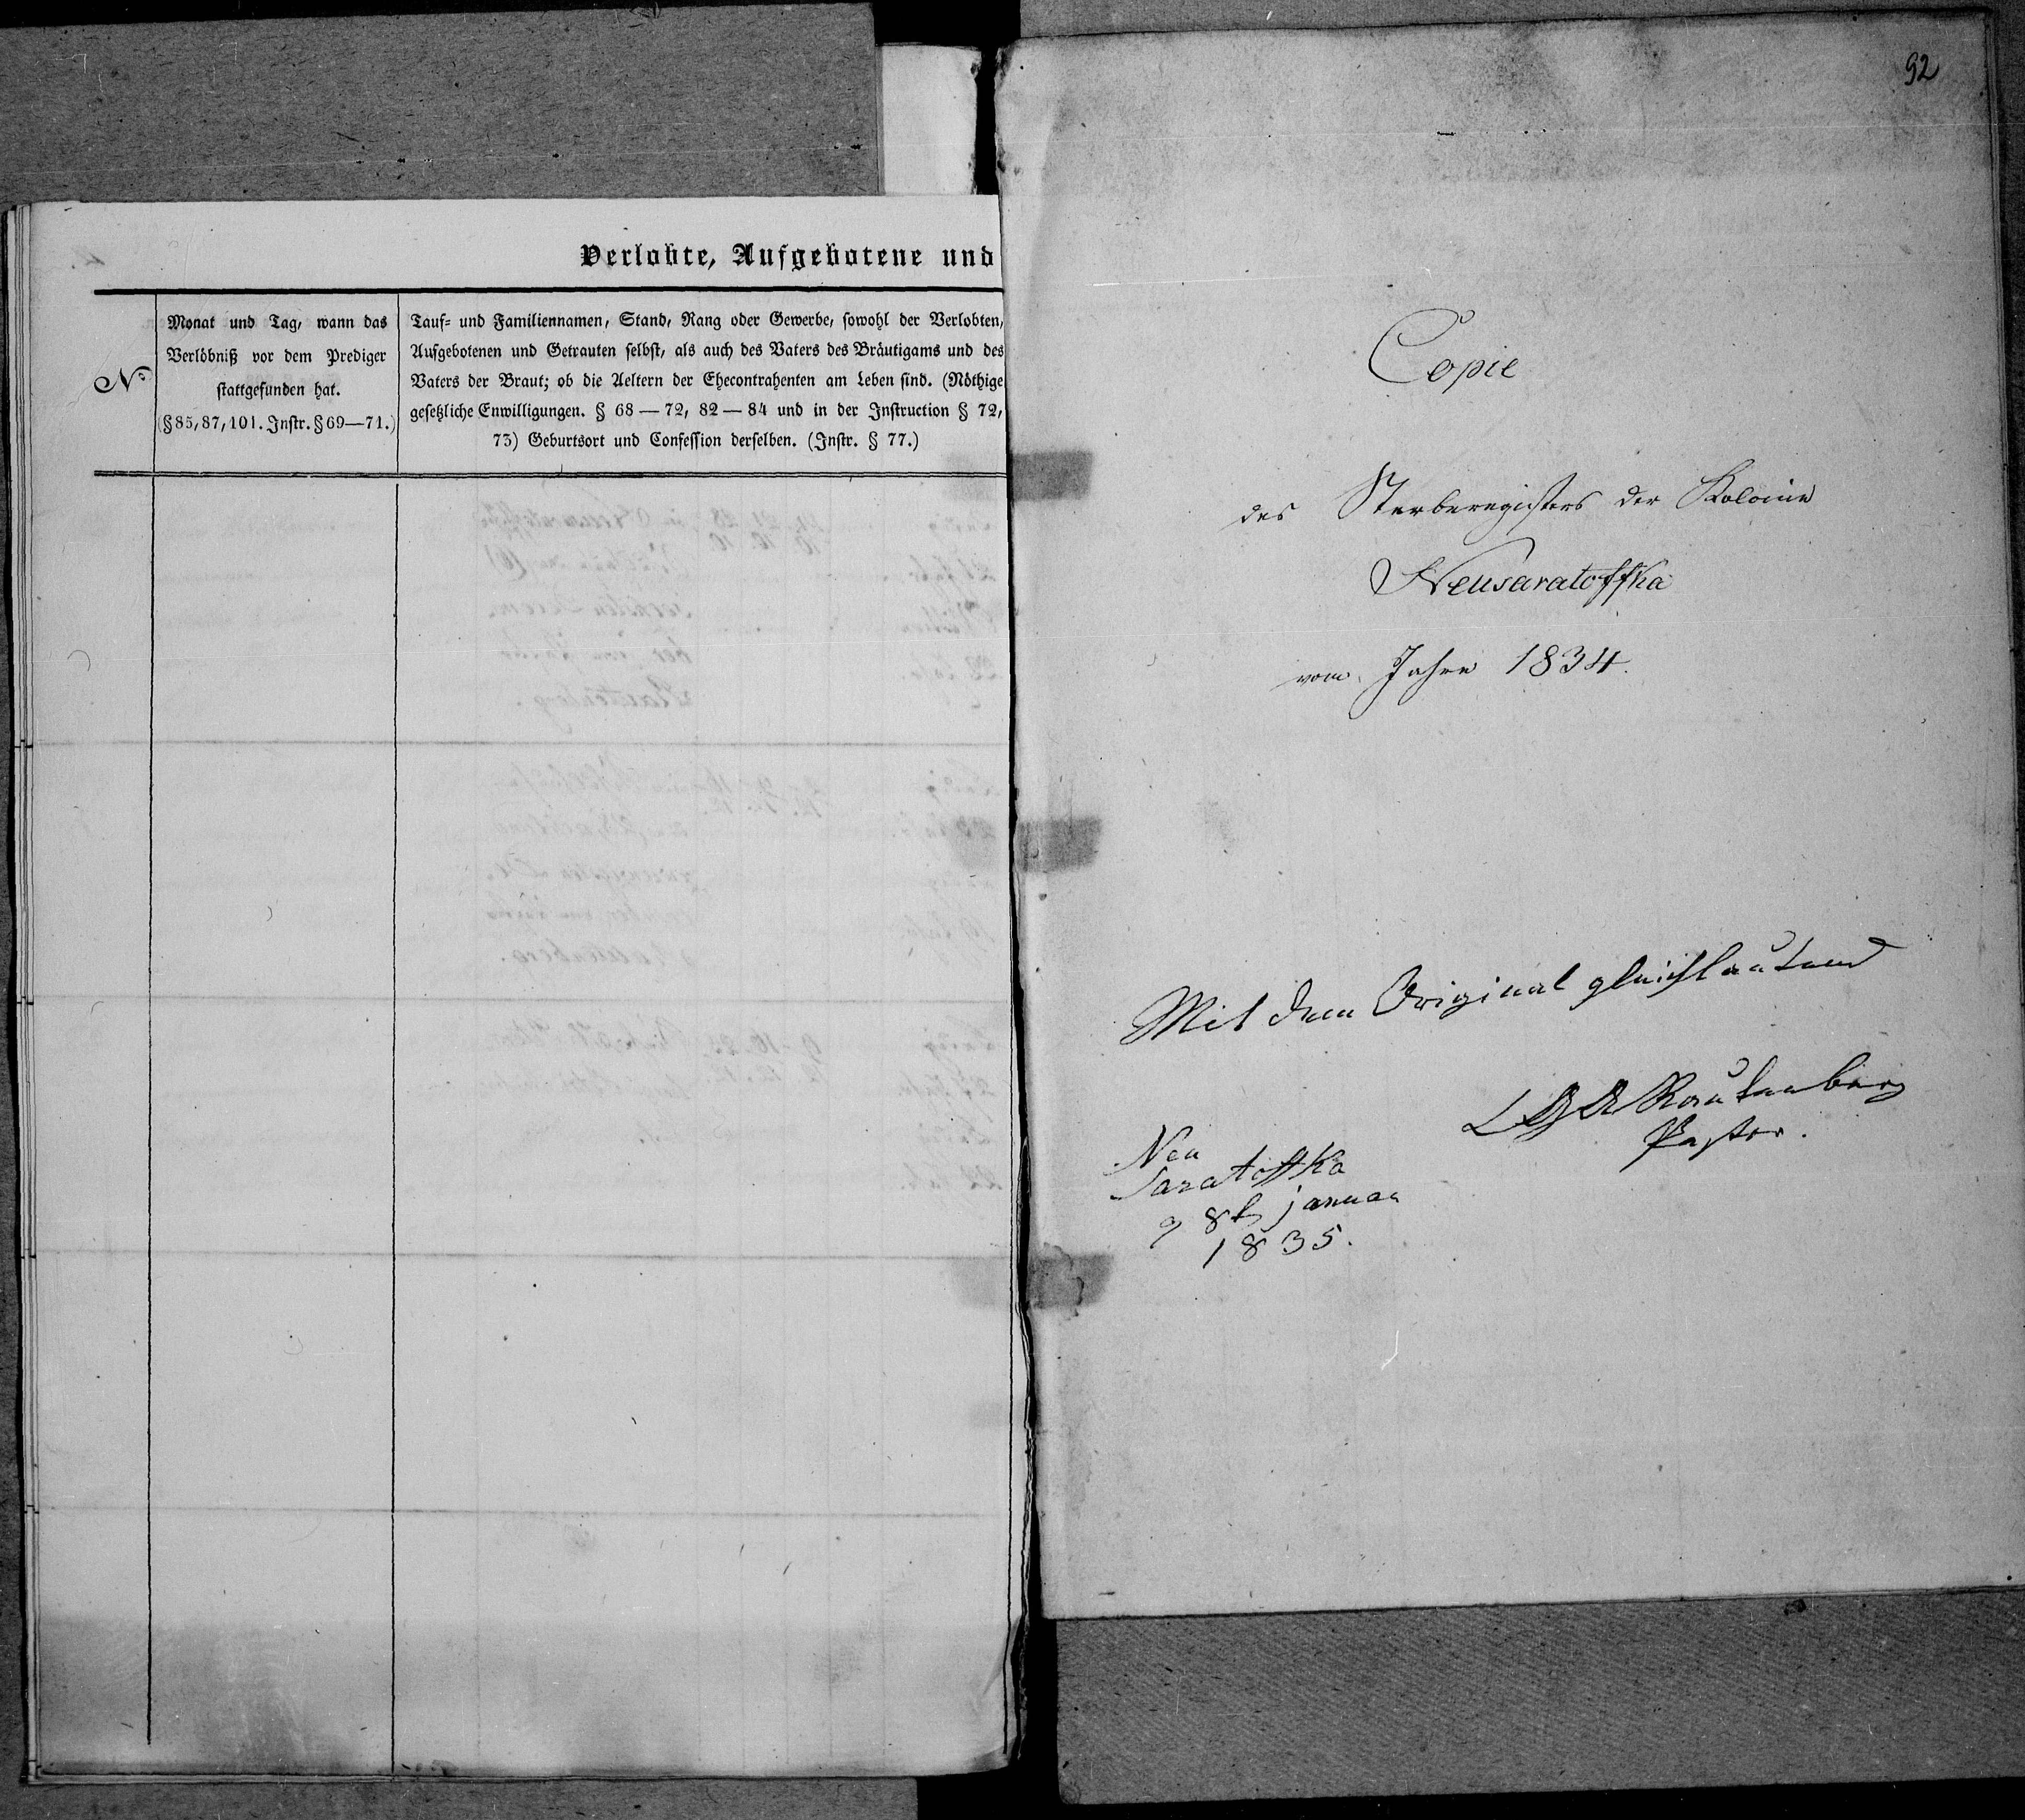 Verlobte, Aufgebotene und
No
Monat und Tag, wann das
Verlöbniß vor dem Prediger
stattgefunden hat.
(§85, 87, 101. Instr. §69—71.)
Tauf= und Familiennamen, Stand, Rang oder Gewerbe, sowohl der Verlobten,
Aufgebotenen und Getrauten selbst, als auch des Vaters des Bräutigams und des
Vaters der Braut; ob die Aeltern der Ehecontrahenten am Leben sind. (Nöthige
gesetzliche Enwilligungen. § 68 — 72, 82 — 84 und in der Instruction § 72,
73) Geburtsort und Confession derselben. (Instr. § 77.)
92
Copie
des Sterberegisters der Kolonie
Neusaratoffka
vom Jahre 1834.
Mit dem Original gleichlautend
Rautenberg
Pastor.
Neu
Saratoffka
januar
1835.